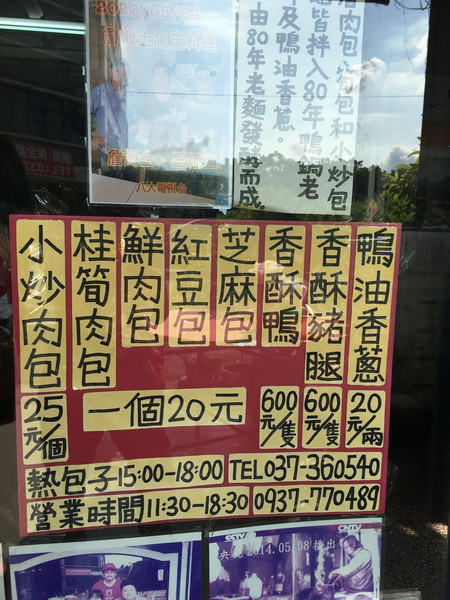 八大電視台
肉包、窩包和小炒包
皆拌入80年鴨鍋老
及鴨油香蔥。
由80年老麵發酵而成
鴨油香蔥
20元/兩
香酥豬腿
600元/隻
香酥鴨
600元/隻
芝麻包
紅豆包
鮮肉包
桂筍肉包
一個20元
小炒肉包
25元/個
熱包子15:00-18:00
TEL037-360540
營業時間11:30-18:30
0937-770489
CCTV
央視2014.05.08播出
CNTV